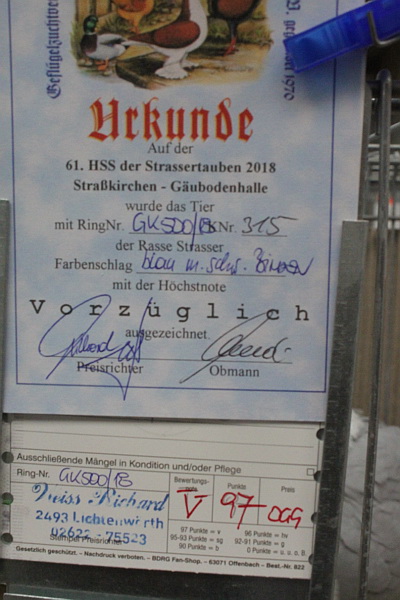 Geflügelzuchtver
gegr. 1970
Urkunde
Auf der
61. HSS der Strassertauben 2018
Straßkirchen - Gäubodenhalle
wurde das Tier
mit RingNr. GK500/18 KNr. 315
der Rasse Strasser
Farbenschlag blau m. schw. Binden
mit der Höchstnote
Vorzüglich
ausgezeichnet
Preisrichter Obmann
Ausschließende Mängel in Kondition und/oder Pflege
Ring-Nr. GK500/18
Bewertungs-
note Punkte Preis
V 97 
Richard
2493 Lichtenwörth
02622 - 75523
Stempel Preisrichter
97 Punkte = v 96 Punkte = hv
93-95 Punkte = sg 92-91 Punkte = g
90 Punkte = b 0 Punkte = u. o. B.
Gesetzlich geschützt. – Nachdruck verboten. – BDRG Fan-Shop. – 63071 Offenbach – Best.-Nr. 822